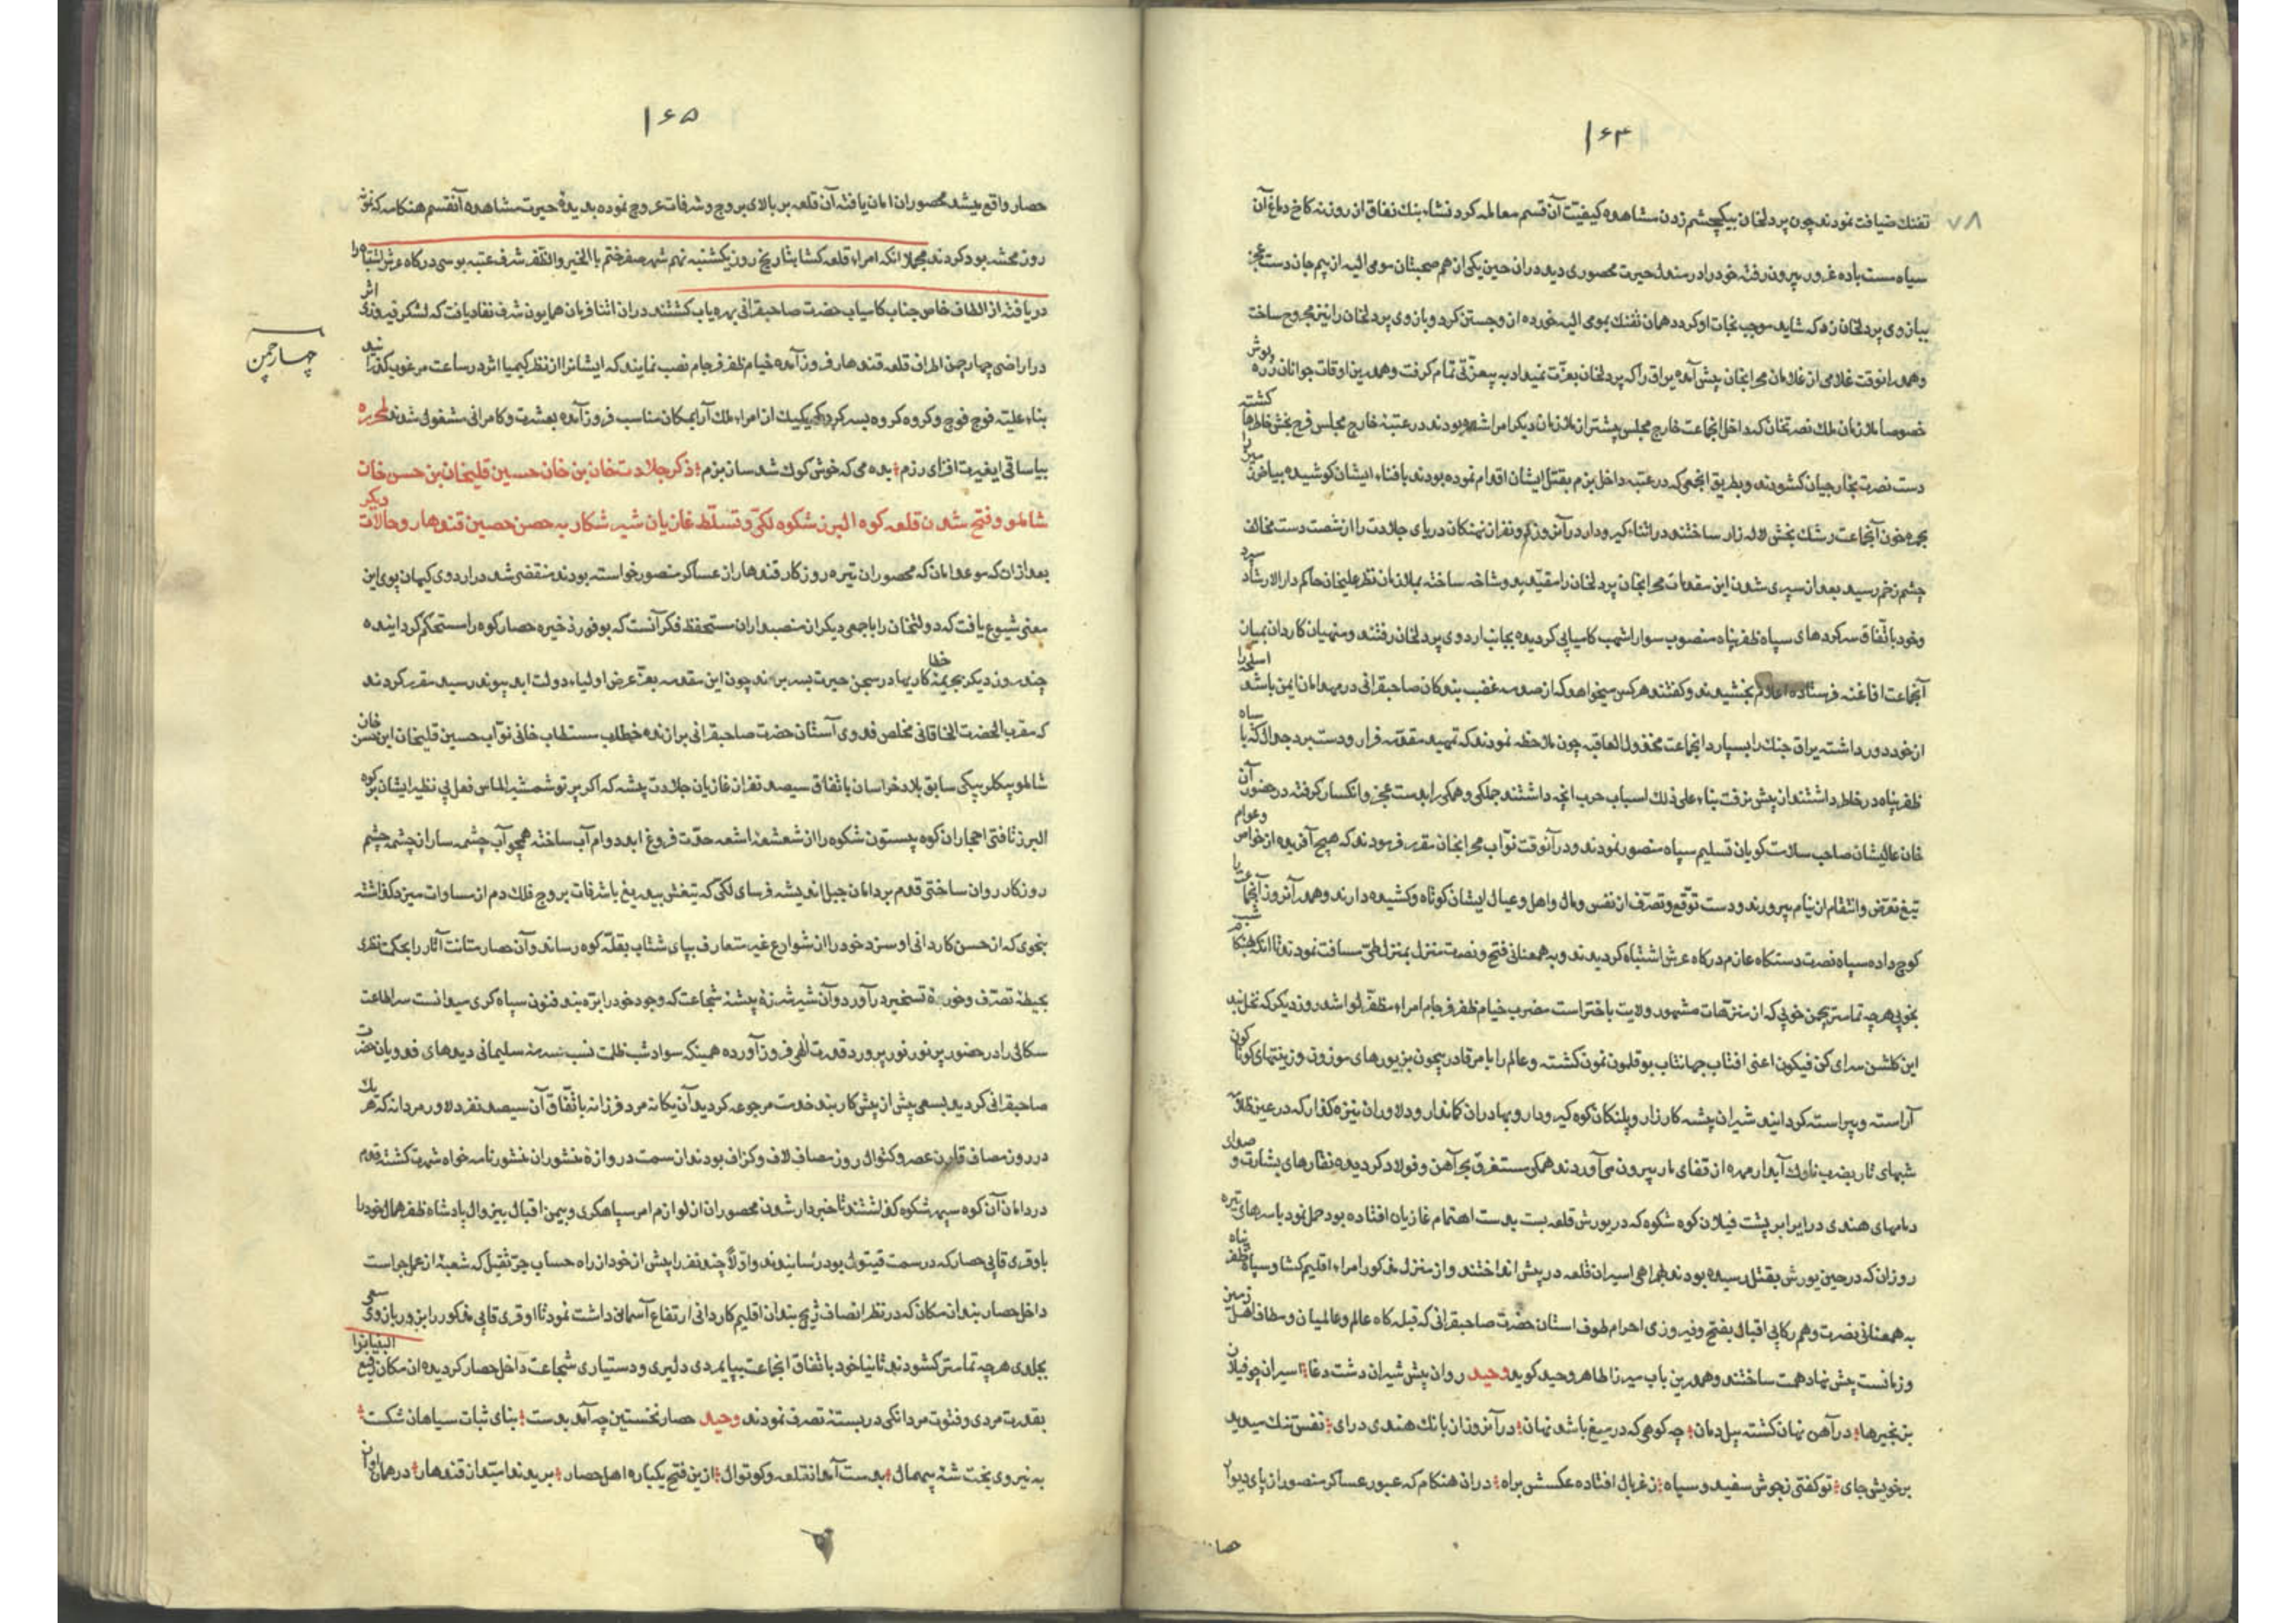 ۱۶۴
۷۸
تفنك ضیافت نمودند چون پردلخان بیکچشم زدن مشاهده کیفیت آن قسم معامله کرد نشاء بنك نفاق از روزنه کاخ دماغ آن
سیاه مست باده غرور بیرون رفته خود را در مندل حیرت محصوری دید در ان حین یکی از هم صحبتان مومی الیه از بیم جان دست عجز
ببازوی پردلخان زد که شاید موجب نجات او کردد همان تفنك بمومی الیه خورده از و جستن کرد و بازوی پردلخان را نیز مجروح ساخت
و همدرانوقت غلامی از غلامان محرابخان پیش آمده یراق را که پردلخان بعزت نمیداد به بیعزتی تمام کرفت و همدرین اوقات جوانان زره پوش
خصوصا ملازمان ملك نصرتخان که داخل انجماعت خارج مجلس پیشتر از ملازمان دیکر امرا شده بودند در عتبه خارج مجلس فرح بخش خاطرها کشته
دست نصرت بخارجیان کشودند و بطریق انجمعی که در عتبه داخل بزم بقتل ایشان اقدام نموده بودند بافناء ایشان کوشیده بیاض را
بجمره خون آنجماعت رشك بخش لاله زار ساختند در اثناء کیر و دار در آنروز دو نفر از نهنکان دریای جلادت را از شصت دست مخالف
چشم زخم رسید بعد از سپری شدن این مقدمات محرابخان پردلخان را مقید بدوشاخه ساخته بملازمان نظر علیخان حاکم دار الارشاد سپرد
و خود باتفاق سرکردهای سپاه ظفر پناه منصوب سوار اشهب کامیابی کردیده بجانب اردوی پردلخان رفتند و منهیان کاردان بمیان
آنجماعت افاغنه فرستاده اعلام بخشیدند و کفتند هرکس میخواهد که از صدمه غضب بندکان صاحبقرانی در مهد امان ایمن باشد اسلحه را
از خود دور داشته یراق جنك را بسپارد انجماعت مخذول العاقبه چون ملاحظه نمودند که تمهید مقدمه فرار و دست برد جدال که با سپاه
ظفر پناه در خاطر داشتند از پیش نرفت بناء علی ذلك اسباب حرب انچه داشتند جملکی و همکی را بدست عجز و انکسار کرفته در حضور آن
خان عالیشان صاحب سلامت کویان تسلیم سپاه منصور نمودند و در آنوقت نواب محرابخان مقرر فرمودند که هیچ آفریده از خواص و عوام
تیغ تعرض و انتقام از نیام بیرون نیاورند و دست توقع و تصرف از نفس و مال و اهل و عیال ایشان کوتاه و کشیده دارند و همدر آنروز آنجماعت را
کوچ داده سپاه نصرت دستکاه عازم درکاه عرش اشتباه کردیدند و به همعنانی فتح و نصرت منزل بمنزل طی مسافت نمودند تا انکه هنکام شب
بخوبی هر چه تمامتر بچمن خوبی که از منتزهات مشهور ولایت باختر است مضرب خیام ظفر فرجام امراء مظفر لوا شد روز دیکر که نخلبند
این کلشن سرای کن فیکون اعنی افتاب جهانتاب بوقلمون نمون کشته و عالم را بامر قادر بیچون بزیورهای موزون و زینتهای کونا کون
آراسته و پیراسته کردانید شیران بیشه کارزار و پلنکان کوه کیر و دار و بهادران کماندار و دلاوران نیزه کذار که در عین ظلام
شبهای تار بضرب ناوك آبدار مهره از قفای مار بیرون می آوردند همکی مستغرق بحر آهن و فولاد کردیده نقارهای بشارت و صدای
دمامهای هندی در ایرابر پشت فیلان کوه شکوه که در یورش قلعه بست بدست اهتمام غازیان افتاده بود حمل نمود با سرهای تیره
روزان که در حین یورش بقتل رسیده بودند بهمراهی اسیران قلعه در پیش انداختند و از منزل مذکور امراء اقلیم کشا و سپاه ظفر پناه
به همعنانی نصرت و همرکابی اقبال بفتح و فیروزی احرام طوف استان حضرت صاحبقرانی که قبله کاه عالم و عالمیان و مطاف اهل زمین
و زمانست پیش نهاد همت ساختند و همدرین باب میرزا طاهر وحید کوید وحید روان پیش شیران دشت دغا اسیران چو فیلان
بزنجیرها در آهن نهان کشته پیل دمان چه کوهی که در میغ باشد نهان در آنروز از بانك هندی درای نفس تنك میدید
بر خویش جای تو کفتی ز جوش سفید و سیاه ز غربال افتاده عکسش براه در ان هنکام که عبور عساکر منصور از پای دیوار
حصار
۱۶۵
حصار واقع میشد محصوران امان یافته آن قلعه بر بالای بروج و شرفات عروج نموده بدیده حیرت مشاهده آنقسم هنکامه که نمونه
روز محشر بود کردند مجملا انکه امراء قلعه کشا بتاریخ روز یکشنبه نهم شهر صفر ختم بالخیر و الظفر شرف عتبه بوسی درکاه عرش اشتباه را
دریافته از الطاف خاص جناب کامیاب حضرت صاحبقرانی بهره یاب کشتند در ان اثنا فرمان همایون شرف نفاذ یافت که لشکر فیروزی اثر
در اراضی چهارچمن اطراف قلعه قندهار فرود آمده خیام ظفر فرجام نصب نمایند که ایشانرا از نظر کیمیا اثر در ساعت مرغوب کذرانید
چهارچمن
بناء علیه فوج فوج و کروه کروه بسرکردکی یکیك از امراء ملك آرا بمکان مناسب فرود آمده بعشرت و کامرانی مشغول شدند لمحرره
بیا ساقی ایغیرت افزای رزم بده می که خوش کوك شد سان بزم ذکر جلادت خان بن خان حسین قلیخان بن حسن خان
شاملو و فتح شدن قلعه کوه البرز شکوه لکی و تسلط غازیان شیر شکار به حصن حصین قندهار و حالات دیکر
بعد از ان که موعد امان که محصوران تیره روزکار قندهار از عساکر منصور خواسته بودند منقضی شد در اردوی کیهان پوی این
معنی شیوع یافت که دولتخان را با جمعی دیکر از منصبداران مستحفظ فکر آنست که بوفور ذخیره حصار کوه را مستحکم کردانیده
چند روز دیکر بجریمه خطا کاریها در سجن حیرت بسر برند چون این مقدمه بعز عرض اولیاء دولت ابد پیوند رسید مقرر کردند
که مقرب الحضرت الخاقانی مخلص فدوی آستان حضرت صاحبقرانی برازنده خطاب مستطاب خانی نواب حسین قلیخان ابن حسن خان
شاملو بیکلربیکی سابق بلاد خراسان باتفاق سیصد نفر از غازیان جلادت پیشه که اکر پرتو شمشیر الماس فعل بی نظیر ایشان بر کوه
البرز تافتی احجار ان کوه بیستون شکوه را از شعشعه اشعه حدت فروغ ابد دوام آب ساخته همچو آب چشمه سار از چشمه چشم
روزکار روان ساختی قدم بر دامان جبل اندیشه فرسای لکی که تیغش بیدریغ با شرفات بروج فلك دم از مساوات میزد کذاشته
بنحوی که از حسن کاردانی او سزد خود را از شوارع غیر متعارف بپای شتاب بقله کوه رساند و آن حصار متانت آثار را بحکمت نظری
بحیطه تصرف و حوزه تسخیر درآورد و آن شیر شرزه بیشه شجاعت که وجود خود را تره بند فنون سپاه کری میدانست سر اطاعت
سکالی را در حضور پر نور نور پرورد قدرت الهی فرود آورده همینکه سواد شب ظلمت نسب سرمه سلیمانی دیدهای فدویان حضرت
صاحبقرانی کردید بسعی بیش از پیش کاربند خدمت مرجوعه کردید آن یکانه مرد فرزانه باتفاق آن سیصد نفر دلاور مردانه که هر یك
در روز مصاف قارن عصر و کتوال روز مصاف لاف و کزاف بودند از سمت دروازه منشوران منشور نامه خواه شهرت کشته قدم
در دامان آن کوه سپهر شکوه کذاشتند تا خبردار شدن محصوران از لوازم امر سپاهکری و بیمن اقبال بیزوال پادشاه ظفر همال خود را
باوقری قاپی حصار که در سمت قیتول بود رسانیدند و اولا چند نفر را پیش از خود از راه حساب جر ثقیل که شعبه از عمل جر است
داخل حصار بند ان مکان که در نظر انصاف زیج بندان اقلیم کاردانی ارتفاع آسمان داشت نمود تا اوقری قاپی مذکور را بزور بازوی سعی
بجلدی هر چه تمامتر کشودند ثانیا خود باتفاق انجماعت بپایمردی دلیری و دستیاری شجاعت داخل حصار کردیده ان مکان رفیع البنیانرا
بقدرت مردی و فتوت مردانکی دربسته تصرف نمودند وحید حصار نخستین چه آمد بدست بنای ثبات سپاهان شکست
به نیروی بخت شه بیهمال بدست آمد انقلعه و کوتوال ازین فتح یکباره اهل حصار بریدند امید از قندهار در همان اوان